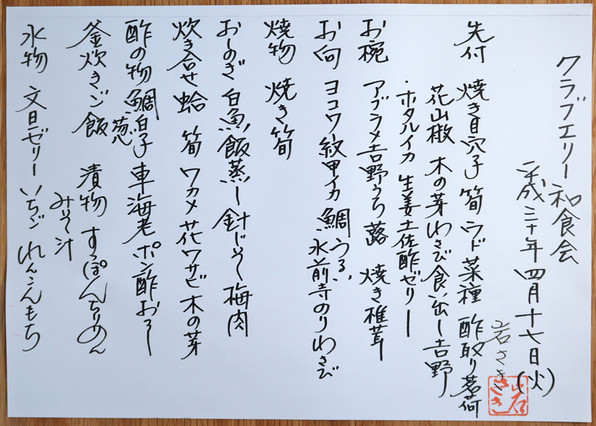 クラブエリー和食会
平成三十年四月十七日(火)
岩さき
先付 焼き目穴子 筍 ウド 菜種 酢取り茗荷
花山椒 木の芽 わさび 食い出し 吉野
・ホタルイカ 生姜 土佐酢ゼリー
お椀 アブラメ吉野うち 蕗 焼き椎茸
お向 ヨコワ 紋甲イカ 鯛うろこ 水前寺のり わさび
焼物 焼き筍
おしのぎ 白魚飯蒸し 針じそ 梅肉
炊き合せ 蛤 筍 ワカメ 花ワサビ 木の芽
酢の物 鯛白子 葱 車海老 ポン酢おろし
釜炊きご飯 漬物 ちりめん
みそ汁
水物 文旦ゼリー いちご れんこんもち